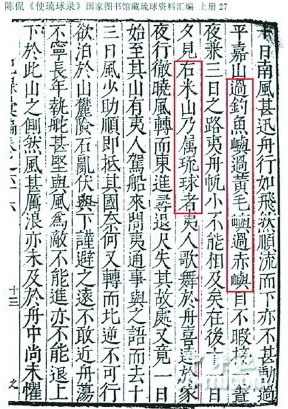 陈侃《使琉球录》国家图书馆藏琉球资料汇编 上册27
日南風甚迅舟行如飛然順流而下亦不甚動過
平嘉山過釣魚嶼過黃毛嶼過赤嶼目不暇接一晝
夜兼三日之路夷舟帆小不能相及矣在後十一日
夕見右米山乃屬琉球者夷人歌舞於舟喜達於家
夜行徹曉風轉而東進尋退尺失其故處又竟一日
始至其山有夷人駕船來問夷通事與之語而去十
三日風少助順即抵其國奈何又轉而北逆不可行
欲泊於山麓險石亂伏於下謹避之遠不敢近舟蕩
不寧長年執舵甚堅與風為敵不能進亦不能退上
下於此山之側然風甚厲浪亦未及於舟中尚未懼